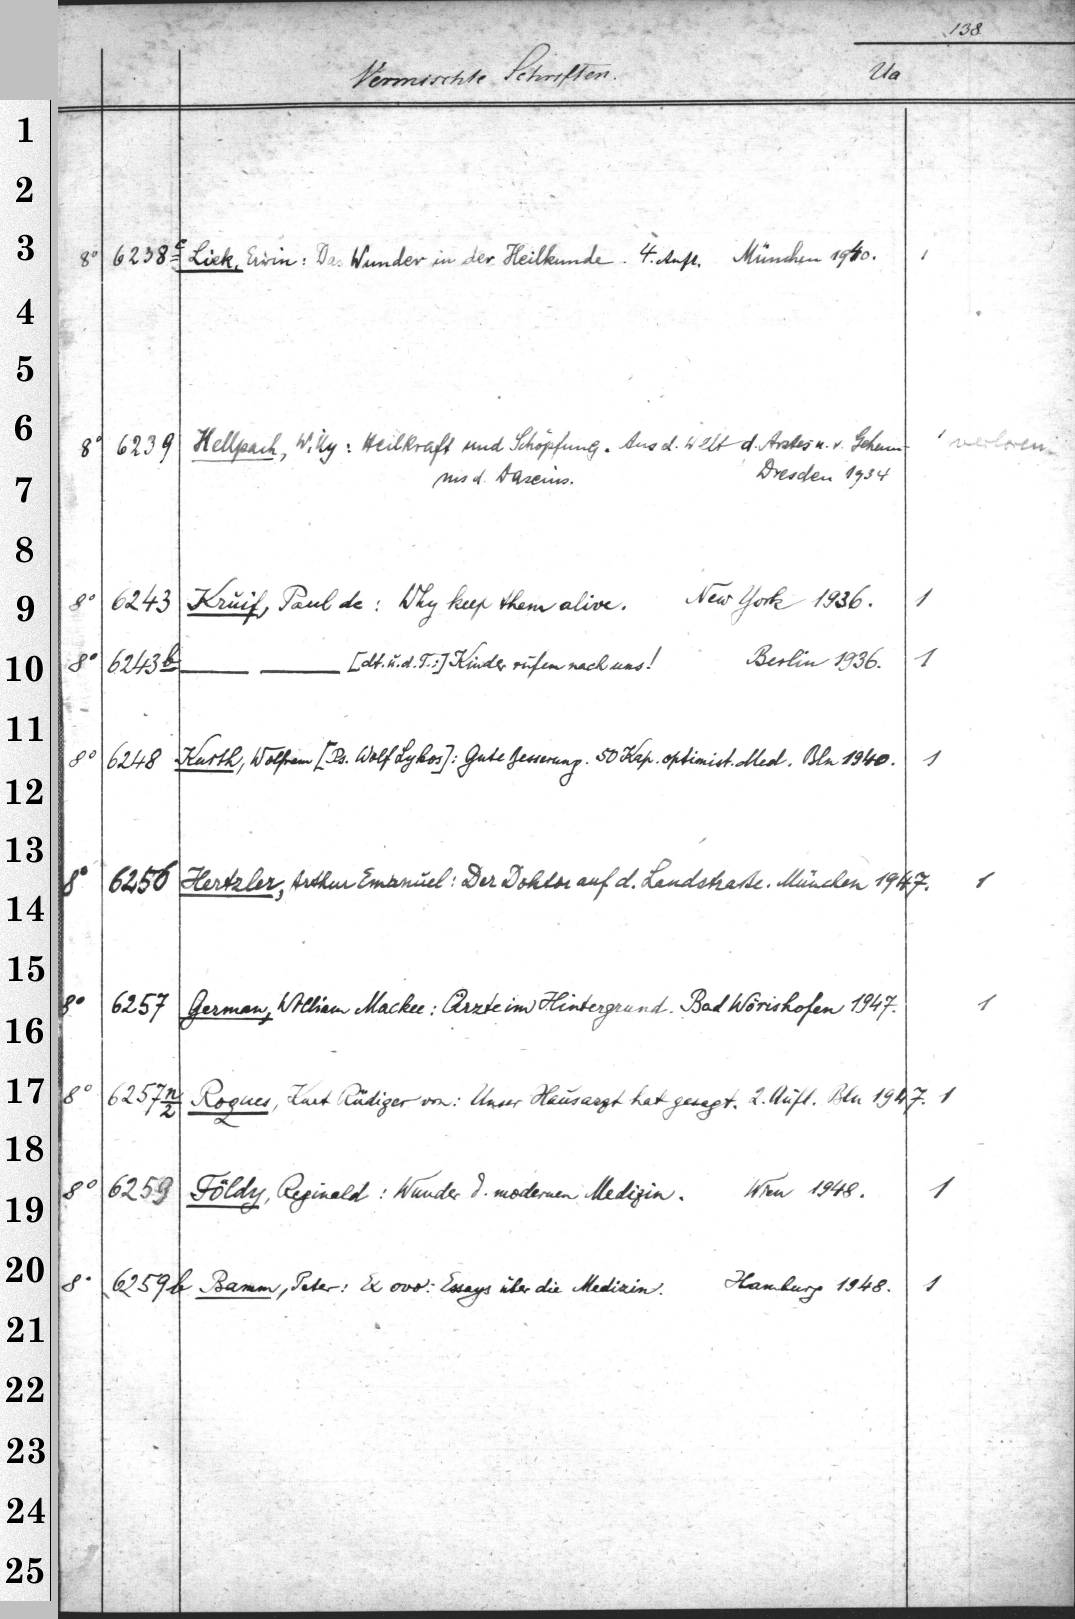 138
Vermischte Schriften. Ua
1
2
3 8° 6238c Liek, Erwin: Das Wunder in der Heilkunde. 4. Aufl. München 1940. 1
4
5
6 8° 6239 Hellpach, Willy: Heilkraft und Schöpfung. Aus d. Welt d. Arztes u. v. Geheim- 1 verloren.
7 nis d. Daseins. Dresden 1934
8
9 8° 6243 Kruif, Paul de: Why keep them alive. New York 1936. 1
10 8° 6243b — — [dt. u. d. T.:] Kinder rufen nach uns! Berlin 1936. 1
11
8° 6248 Kurth, Wolfram [Ps. Wolf Lykos]: Gute Besserung. 50 Kap. optimist. Med. Bln 1940. 1
12
13
8° 6256 Hertzler, Arthur Emanuel: Der Doktor auf d. Landstraße. München 1947. 1
14
15
8° 6257 German, William Mackee: Ärzte im Hintergrund. Bad Wörishofen 1947. 1
16
17 8° 6257n/2 Roques, Kurt Rüdiger von: Unser Hausarzt hat gesagt. 2. Aufl. Bln 1947. 1
18
19 8° 6259 Földy, Reginald: Wunder d. modernen Medizin. Wien 1948. 1
20 8° 6259b Bamm, Peter: Ex ovo: Essays über die Medizin. Hamburg 1948. 1
21
22
23
24
25